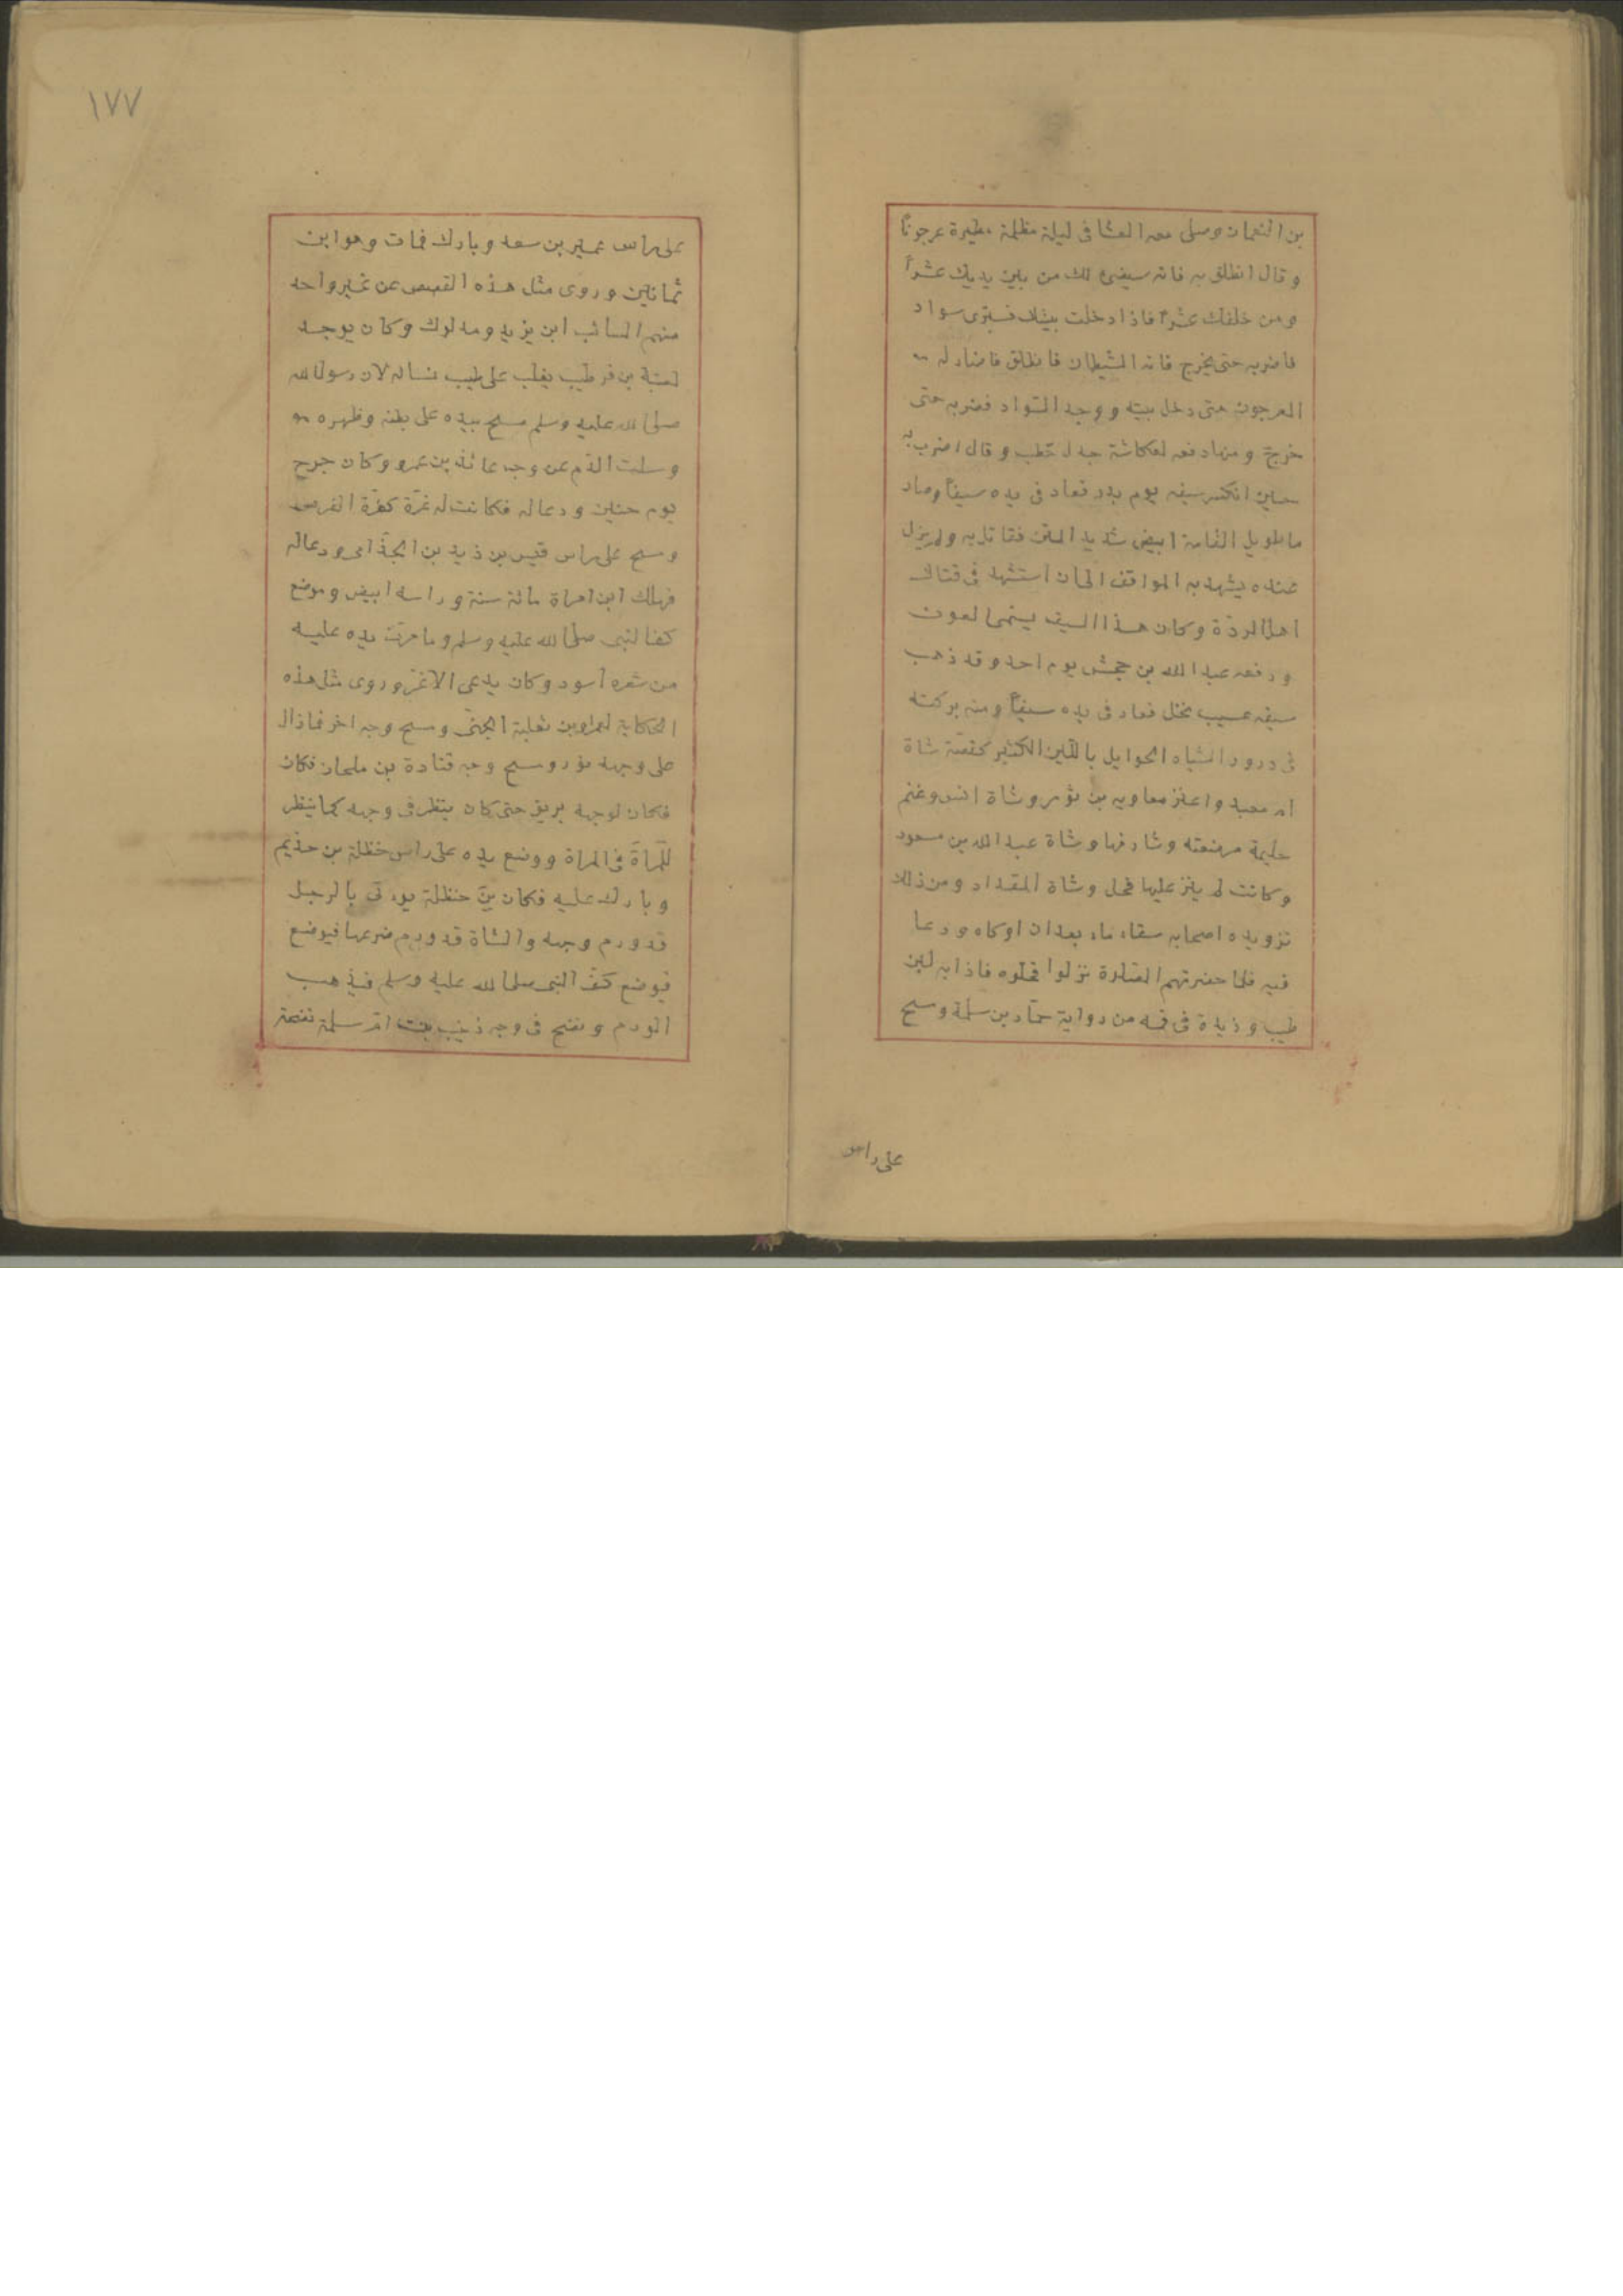 بن النعمان وصلى معه العشا فى ليلة مظلمة مطيرة عرجونًا
وقال انطلق به فانه سيضئ لك من بين يديك عشرًا
ومن خلفك عشرًا فاذا دخلت بيتك فسترى سواد
فاضربه حتى يخرج فانه الشيطان فانطلق فاضاء له
العرجون حتى دخل بيته ووجد السّواد فضربه حتى
خرج ومنها دفعه لعكاشة جدل حطب وقال اضرب به
حين انكسر سيفه يوم بدر فعاد فى يده سيفًا وصار
ما طويل القامة ابيض شديد المتن فقاتل به ولم يزل
عنده يشهد به المواقف الى ان استشهد فى قتال
اهل الردّة وكان هذا السيف يسمى العون
ودفعه عبد الله بن جحش يوم احد وقد ذهب
سيفه عسيب نخل فعاد فى يده سيفًا ومنه بركته
فى درور الشياه الحوايل باللّبن الكثير كقصّة شاة
ام معبد واعنز معاويه بن ثور وشاة انس وغنم
حليمة مرضعته وشارفها وشاة عبد الله بن مسعود
وكانت لم ينز عليها فحل وشاة المقداد ومن ذلك
تزويده اصحابه سقاء ماء بعد ان اوكاه ودعا
فيه فلما حضرتهم الصّلوة نزلوا فحلوه فاذا به لبن
طيب وزبدة فى فمه من رواية حمّاد بن سلمة ومسح
على راس
١٧٧
على راس عمير بن سعد وبارك فمات وهو ابن
ثمانين وروى مثل هذه القصص عن غير واحد
منهم السائب ابن يزيد ومدلوك وكان يوجد
لعتبة بن فرقد طيب يغلب على طيب نسائه لان رسول الله
صلى الله عليه وسلم مسح بيده على بطنه وظهره
وسلت الدّم عن وجه عائذ بن عمرو وكان جرح
يوم حنين ودعا له فكانت له غرّة كغرّة الفرس
ومسح على راس قيس بن زيد بن الجذّامى ودعا له
فهلك ابن مائة سنة وراسه ابيض وموضع
كف النبى صلى الله عليه وسلم وما مرّت يده عليه
من شعره اسود وكان يدعى الاغرّ وروى مثل هذه
الحكاية لعمرو بن ثعلبة الجهنى ومسح وجه اخر فما زال
على وجهه نور ومسح وجه قتادة بن ملحان فكان
فكان لوجهه بريق حتى كان ينظر فى وجهه كما ينظر
للمرأة فى المراة ووضع يده على راس حنظلة بن حذيم
وبارك عليه فكان بين حنظلة يوتى بالرجل
قد ورم وجهه والشاة قد ورم ضرعها فيوضع
فيوضع كفّ النبى صلى الله عليه وسلم فيذهب
الورم ونضح فى وجه زينب بنت امّ سلمة نضحة